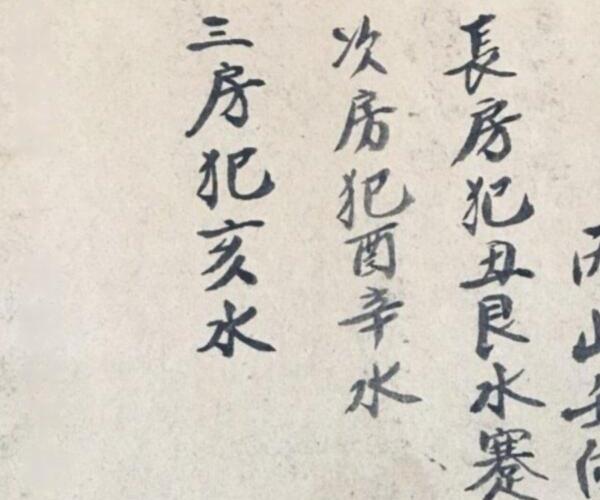 丙山壬向
長房犯丑艮水蹇
次房犯酉辛水
三房犯亥水